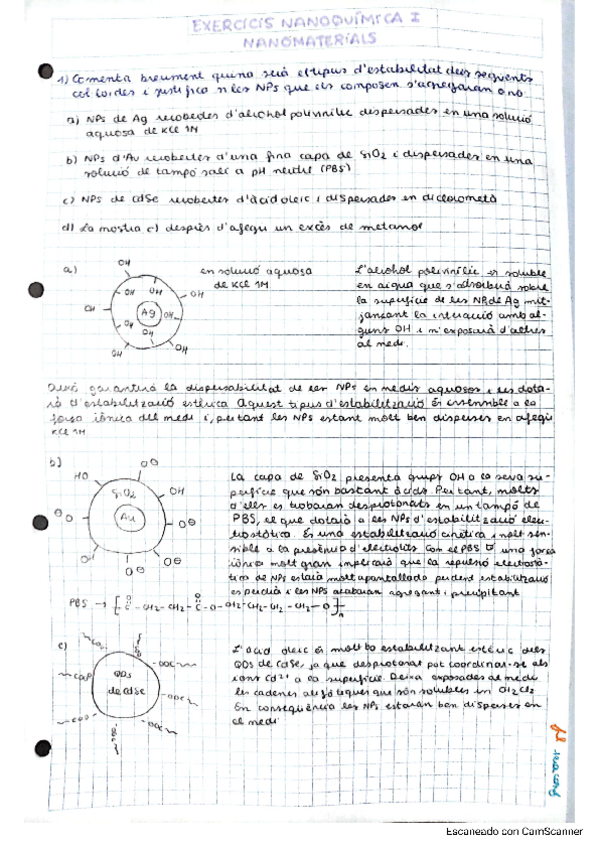 EXERCICIS NANOQUÍMICA I
NANOMATERIALS
1) Comenta breument quina serà el tipus d'estabilitat dels següents
col·loides i justifica si les NPs que els composen s'agregaran o no
a) NPs de Ag recobertes d'alcohol polivinílic dispersades en una solució
aquosa de KCl 1M
b) NPs d'Au recobertes d'una fina capa de SiO2 i dispersades en una
solució de tampó salí a pH neutre (PBS)
c) NPs de CdSe recobertes d'àcid oleic i dispersades en diclorometà
d) La mostra c) després d'afegir un excés de metanol
a)
OH
OH
OH
OH
OH
OH
OH
OH
OH
OH
Ag
en solució aquosa
de KCl 1M
L'alcohol polivinílic és soluble
en aigua que s'adsorbirà sobre
la superfície de les NP de Ag mit-
jançant la interacció amb al-
guns OH i n'exposarà d'altres
al medi.
Això garantirà la dispersabilitat de les NPs en medis aquosos i les dota-
rà d'estabilització estèrica. Aquest tipus d'estabilització és insensible a la
força iònica del medi i, pertant les NPs estaran molt ben disperses en afegir
KCl 1M
b)
HO
O⊖
OH
SiO2
Au
⊖O
O⊖
OH
O⊖
O⊖
La capa de SiO2 presenta grups OH a la seva su-
perfície que són bastant àcids. Per tant, molts
d'ells es trobaran desprotonats en un tampó de
PBS, el que dotarà a les NPs d'estabilització elec-
trostàtica. És una estabilització cinètica i molt sen-
sible a la presència d'electrolits. Com el PBS té una força
iònica molt gran implicarà que la repulsió electostà-
tica de NPs estarà molt apantallada perdent estabilització
esperdrà i les NPs acabaran agregant i precipitant
PBS → [ C - CH2 - CH2 - C - O - CH2 - CH2 - CH2 - CH2 - O ]n
c)
QDs
de CdSe
L'àcid oleic és molt bo estabilitzant estèric dels
QDs de CdSe, ja que desprotonat pot coordinar-se als
ions Cd2+ a la superfície. Deixa exposades al medi
les cadenes alifàtiques que són solubles en CH2Cl2
En conseqüència les NPs estaran ben disperses en
el medi
Escaneado con CamScanner